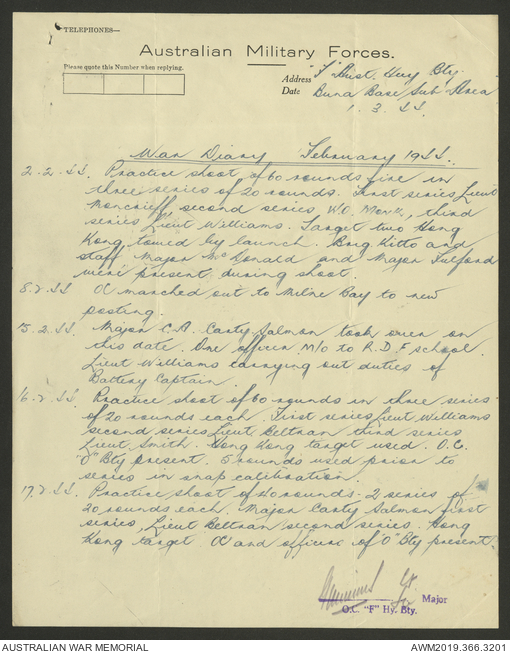 TELEPHONES—
Australian Military Forces.
Please quote this Number when replying.
Address "F" Aust. Hvy Bty.
Date Buna Base Sub Area
1.3.44
War Diary February 1944.
2.2.44. Practice shoot of 60 rounds fire in
three series of 20 rounds. First series Lieut
Moncrieff, second series W.O. , third
series, Lieut Williams. Target two Hong
Kong towed by launch. Brig Kitto and
staff, Major McDonald and Major Fulford
were present during shoot.
8.2.44 OC marched out to Milne Bay to new
posting.
15.2.44. Major C.A. Carty Salmon took over on
this date. One officer m/o to R.D.F school.
Lieut Williams carrying out duties of
Battery Captain.
16.2.44. Practice shoot of 60 rounds in three series
of 20 rounds each. First series Lieut Williams
second series, Lieut Beltran third series
Lieut. Smith. Hong Kong target used. O.C.
"O" Bty present. 5 rounds used prior to
series in snap calibration.
17.2.44. Practice shoot of 40 rounds - 2 series of
20 rounds each. Major Carty Salmon first
series, Lieut Beltran second series. Hong
Kong target. OC and officers of "O" Bty present
Major
O.C. "F" Hy. Bty.
AUSTRALIAN WAR MEMORIAL
AWM2019.366.3201